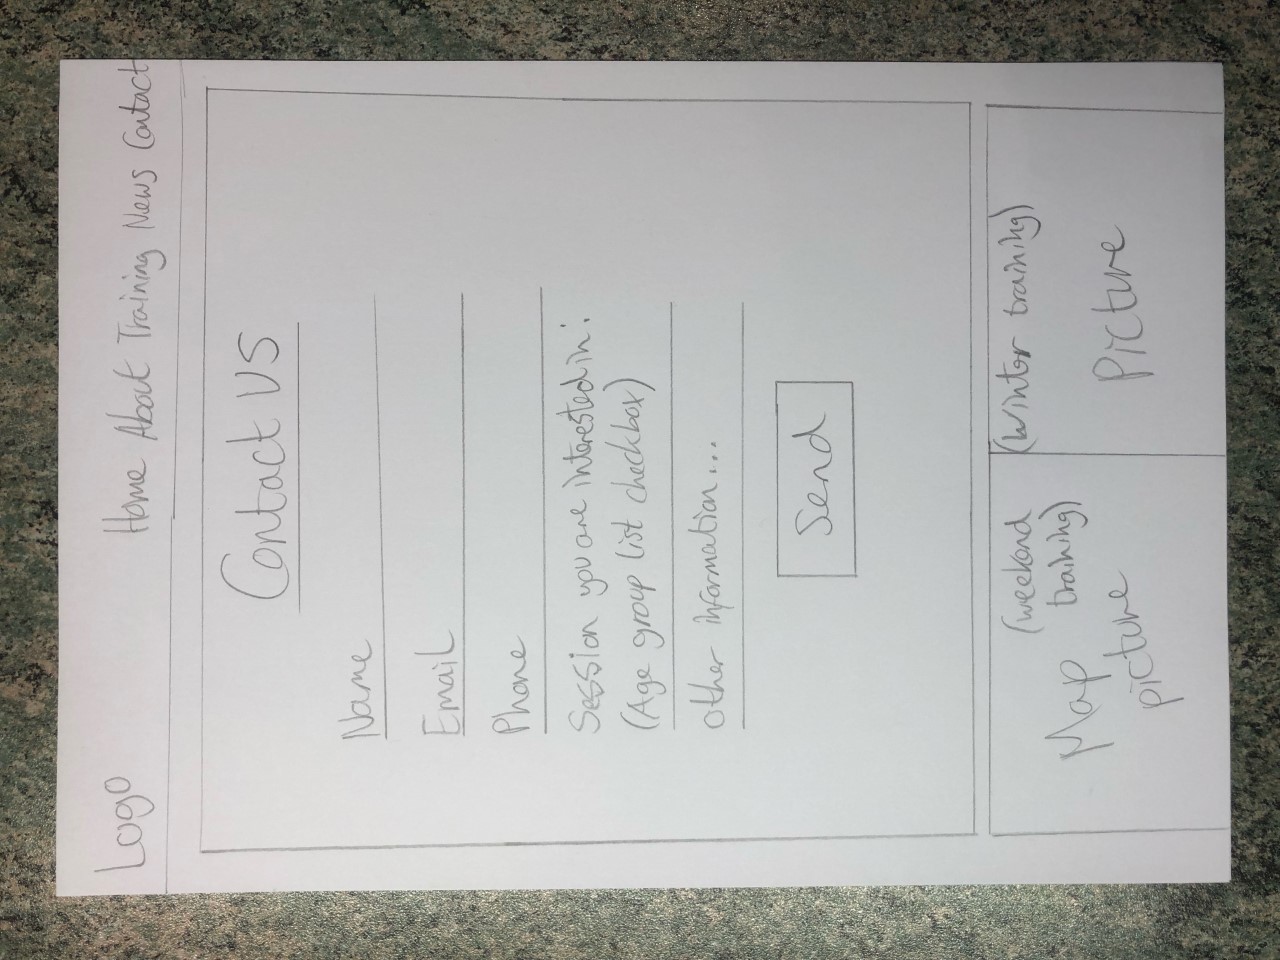 Logo Home About Training News Contact
Contact US
Name
Email
Phone
Session you are interested in:
(Age group list checkbox)
other information...
Send
(weekend
training)
Map
picture
(Winter training)
Picture